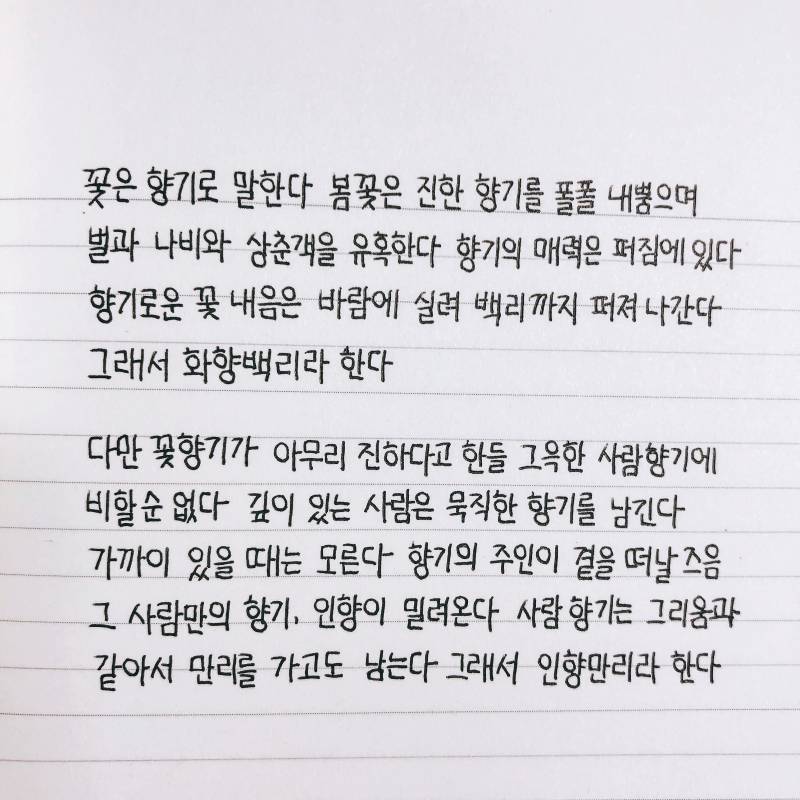 꽃은 향기로 말한다 봄꽃은 진한 향기를 폴폴 내뿜으며
벌과 나비와 상춘객을 유혹한다 향기의 매력은 퍼짐에 있다
향기로운 꽃 내음은 바람에 실려 백리까지 퍼져 나간다
그래서 화향백리라 한다
다만 꽃향기가 아무리 진하다고 한들 그윽한 사람향기에
비할 순 없다 깊이 있는 사람은 묵직한 향기를 남긴다
가까이 있을 때는 모른다 향기의 주인이 곁을 떠날 즈음
그 사람만의 향기, 인향이 밀려온다 사람 향기는 그리움과
같아서 만리를 가고도 남는다 그래서 인향만리라 한다